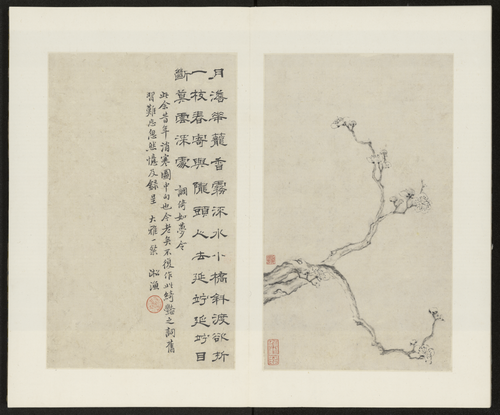 月澹華籠香霧流水小橋斜渡欲折
一枝春寄與隴頭人去延竚延竚目
斷莫雲深處 調倚如夢令
此余昔年消寒圖中句也今老矣不復作此綺豔之詞舊
習難忘忽然憶及錄呈 大雅一粲 淞漁